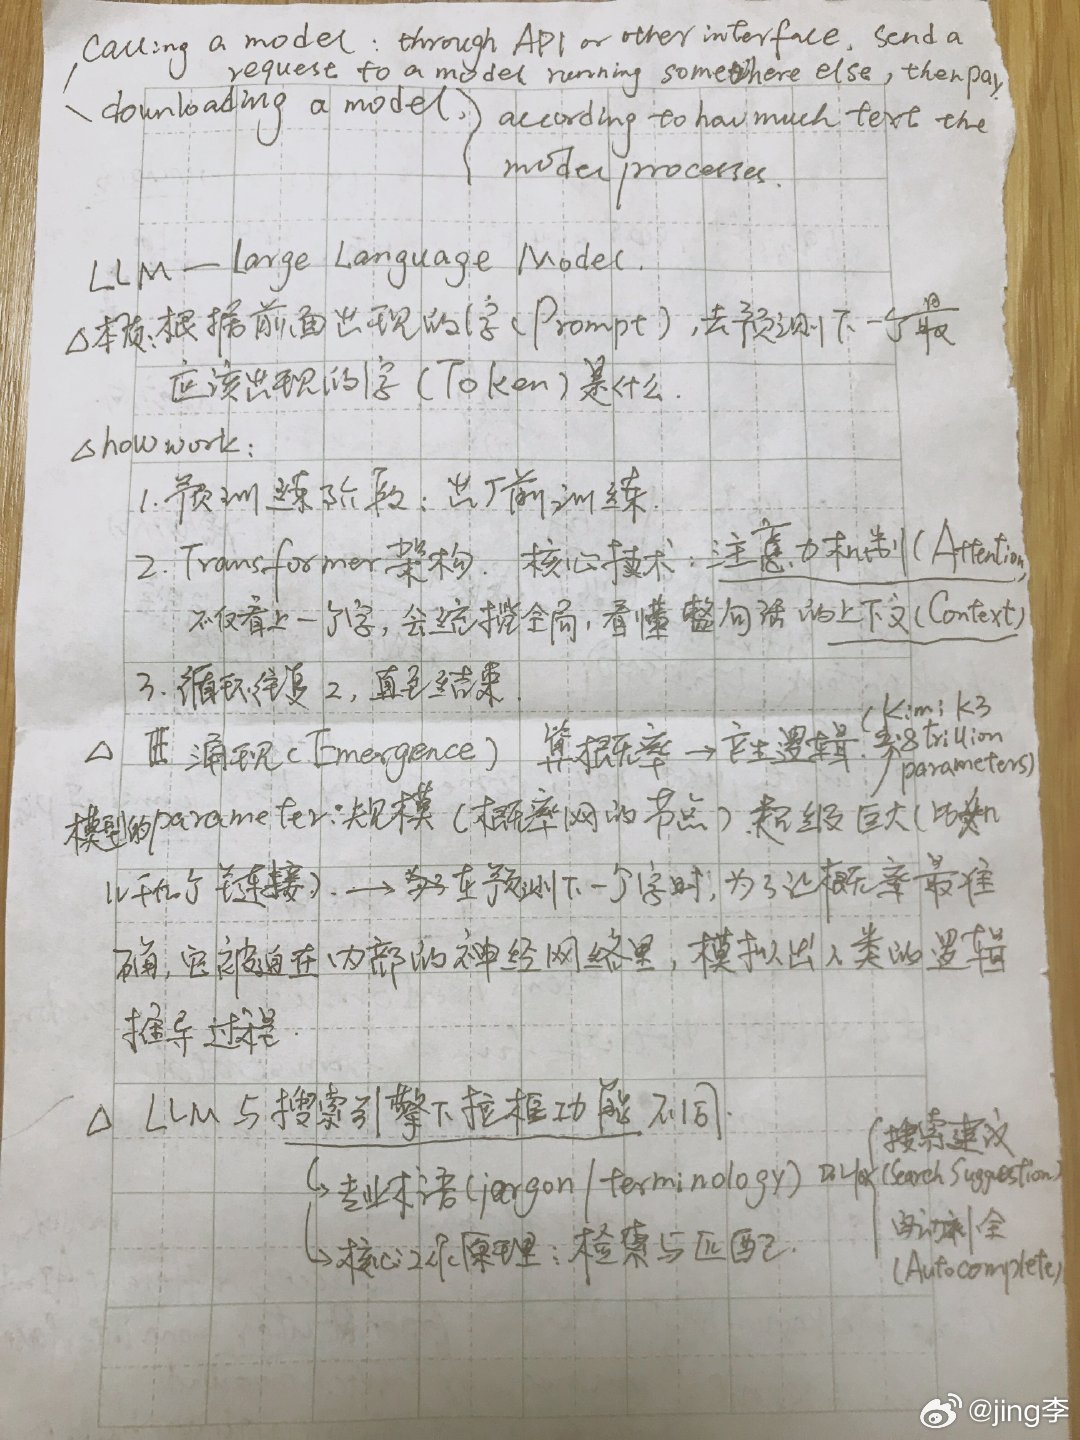 Calling a model: through API or other interface, send a
request to a model running somewhere else, then pay
downloading a model.
according to how much text the
model processes.
LLM — Large Language Model.
△本质:根据前面出现的字(Prompt),去预测下一个最
应该出现的字(Token)是什么.
△how work:
1.预训练阶段:出厂前训练.
2.Transformer架构. 核心技术:注意力机制(Attention
不仅看上一个字,会统揽全局,看懂整句话的上下文(Context)
3.循环往复2,直至结束.
△ 涌现(Emergence) 算概率→产生逻辑.
(Kimi K3
2.8 trillion
parameters)
模型的parameter:规模(概率网的节点)超级巨大(
几千亿个连接).→ 在预测下一个字时,为了让概率最准
确,它被迫在内部的神经网络里,模拟出人类的逻辑
推导过程.
△ LLM与搜索引擎下拉框功能不同.
↳专业术语(jargon/terminology)
搜索建议
(Search Suggestion)
自动补全
(Autocomplete)
↳核心工作原理:检索与匹配.
@jing李